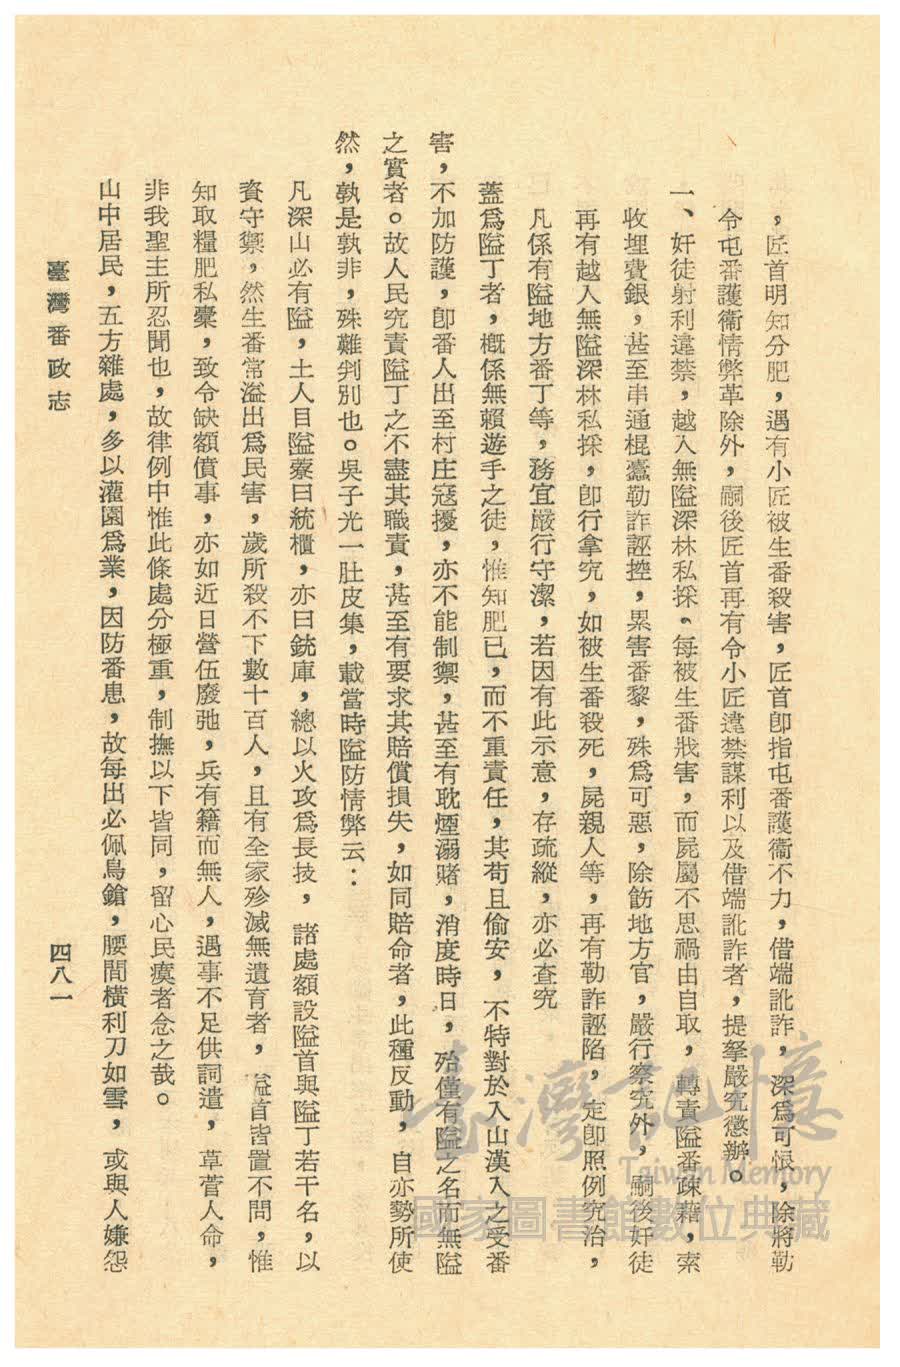 ，匠首明知分肥，遇有小匠被生番殺害，匠首卽指屯番護衞不力，借端訛詐，深爲可恨，除將勒
令屯番護衞情弊革除外，嗣後匠首再有令小匠違禁謀利以及借端訛詐者，提拏嚴究懲辦。
一、奸徒射利違禁，越入無隘深林私採、每被生番戕害，而屍屬不思禍由自取，轉責隘番疎藉，索
收埋費銀，甚至串通棍蠹勒詐誣控，累害番黎，殊爲可惡，除飭地方官，嚴行察究外，嗣後奸徒
再有越入無隘深林私採，卽行拿究，如被生番殺死，屍親人等，再有勒詐誣陷，定卽照例究治，
凡係有隘地方番丁等，務宜嚴行守潔，若因有此示意，存疏縱，亦必查究
蓋爲隘丁者，槪係無賴遊手之徒，惟知肥已，而不重責任，其苟且偷安，不特對於入山漢人之受番
害，不加防護，卽番人出至村庄寇擾，亦不能制禦，甚至有耽煙溺賭，消度時日，殆僅有隘之名而無隘
之實者。故人民究責隘丁之不盡其職責，甚至有要求其賠償損失，如同賠命者，此種反動，自亦勢所使
然，孰是孰非，殊難判別也。吳子光一肚皮集，載當時隘防情弊云：
凡深山必有隘，土人目隘藔曰統櫃，亦曰銃庫，總以火攻爲長技，諸處額設隘首與隘丁若干名，以
資守禦，然生番常溢出爲民害，歲所殺不下數十百人，且有全家殄滅無遺育者，隘首皆置不問，惟
知取糧肥私槖，致令缺額僨事，亦如近日營伍廢弛，兵有籍而無人，遇事不足供詞遣，草菅人命，
非我聖主所忍聞也，故律例中惟此條處分極重，制撫以下皆同，留心民瘼者念之哉。
山中居民，五方雜處，多以灌園爲業，因防番患，故每出必佩鳥鎗，腰間橫利刀如雪，或與人嫌怨
臺灣番政志
四八一
臺灣記憶
Taiwan Memory
國家圖書館數位典藏